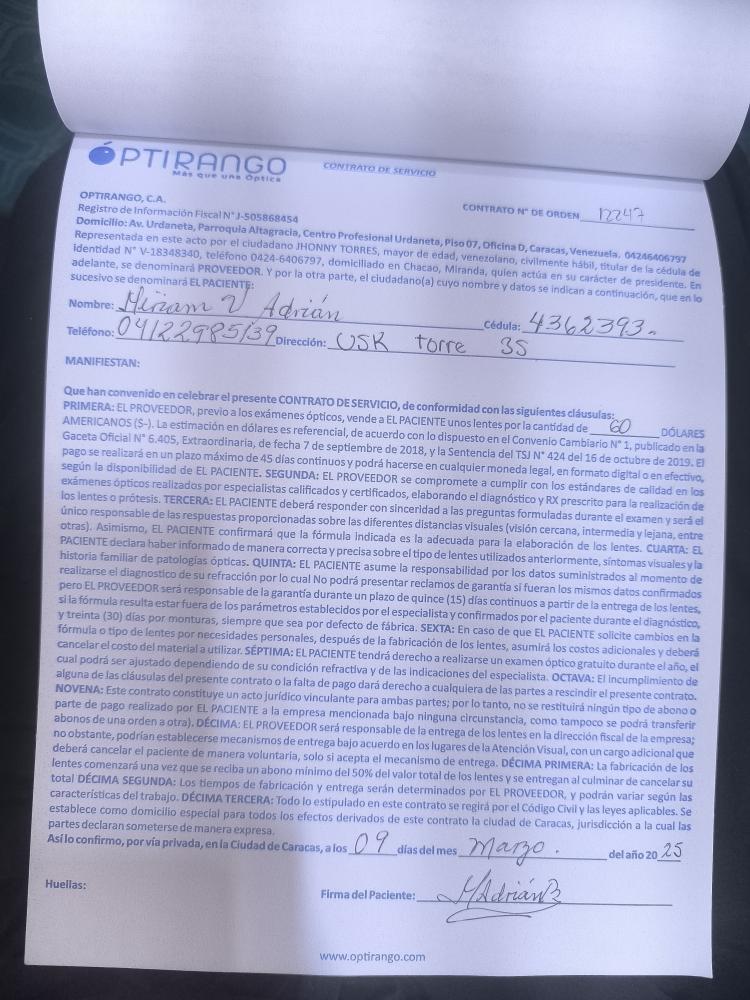 OPTIRANGO
Más que una Óptica
CONTRATO DE SERVICIO
OPTIRANGO, C.A.
CONTRATO N° DE ORDEN 12247
Registro de Información Fiscal N° J-505868454
Domicilio: Av. Urdaneta, Parroquia Altagracia, Centro Profesional Urdaneta, Piso 07, Oficina D, Caracas, Venezuela. 04246406797
Representada en este acto por el ciudadano JHONNY TORRES, mayor de edad, venezolano, civilmente hábil, titular de la cédula de
identidad N° V-18348340, teléfono 0424-6406797, domiciliado en Chacao, Miranda, quien actúa en su carácter de presidente. En
adelante, se denominará PROVEEDOR. Y por la otra parte, el ciudadano(a) cuyo nombre y datos se indican a continuación, que en lo
sucesivo se denominará EL PACIENTE:
Nombre: Miriam V Adrián Cédula: 4362393.
Teléfono: 04122985139 Dirección: USR torre 35
MANIFIESTAN:
Que han convenido en celebrar el presente CONTRATO DE SERVICIO, de conformidad con las siguientes cláusulas:
PRIMERA: EL PROVEEDOR, previo a los exámenes ópticos, vende a EL PACIENTE unos lentes por la cantidad de 60 DÓLARES
AMERICANOS ($-). La estimación en dólares es referencial, de acuerdo con lo dispuesto en el Convenio Cambiario N° 1, publicado en la
Gaceta Oficial N° 6.405, Extraordinaria, de fecha 7 de septiembre de 2018, y la Sentencia del TSJ N° 424 del 16 de octubre de 2019. El
pago se realizará en un plazo máximo de 45 días continuos y podrá hacerse en cualquier moneda legal, en formato digital o en efectivo,
según la disponibilidad de EL PACIENTE. SEGUNDA: EL PROVEEDOR se compromete a cumplir con los estándares de calidad en los
exámenes ópticos realizados por especialistas calificados y certificados, elaborando el diagnóstico y RX prescrito para la realización de
los lentes o prótesis. TERCERA: EL PACIENTE deberá responder con sinceridad a las preguntas formuladas durante el examen y será el
único responsable de las respuestas proporcionadas sobre las diferentes distancias visuales (visión cercana, intermedia y lejana, entre
otras). Asimismo, EL PACIENTE confirmará que la fórmula indicada es la adecuada para la elaboración de los lentes. CUARTA: EL
PACIENTE declara haber informado de manera correcta y precisa sobre el tipo de lentes utilizados anteriormente, síntomas visuales y la
historia familiar de patologías ópticas. QUINTA: EL PACIENTE asume la responsabilidad por los datos suministrados al momento de
realizarse el diagnostico de su refracción por lo cual No podrá presentar reclamos de garantía si fueran los mismos datos confirmados
pero EL PROVEEDOR será responsable de la garantía durante un plazo de quince (15) días continuos a partir de la entrega de los lentes,
si la fórmula resulta estar fuera de los parámetros establecidos por el especialista y confirmados por el paciente durante el diagnóstico,
y treinta (30) días por monturas, siempre que sea por defecto de fábrica. SEXTA: En caso de que EL PACIENTE solicite cambios en la
fórmula o tipo de lentes por necesidades personales, después de la fabricación de los lentes, asumirá los costos adicionales y deberá
cancelar el costo del material a utilizar. SÉPTIMA: EL PACIENTE tendrá derecho a realizarse un examen óptico gratuito durante el año, el
cual podrá ser ajustado dependiendo de su condición refractiva y de las indicaciones del especialista. OCTAVA: El incumplimiento de
alguna de las cláusulas del presente contrato o la falta de pago dará derecho a cualquiera de las partes a rescindir el presente contrato.
NOVENA: Este contrato constituye un acto jurídico vinculante para ambas partes; por lo tanto, no se restituirá ningún tipo de abono o
parte de pago realizado por EL PACIENTE a la empresa mencionada bajo ninguna circunstancia, como tampoco se podrá transferir
abonos de una orden a otra). DÉCIMA: EL PROVEEDOR será responsable de la entrega de los lentes en la dirección fiscal de la empresa;
no obstante, podrían establecerse mecanismos de entrega bajo acuerdo en los lugares de la Atención Visual, con un cargo adicional que
deberá cancelar el paciente de manera voluntaria, solo si acepta el mecanismo de entrega. DÉCIMA PRIMERA: La fabricación de los
lentes comenzará una vez que se reciba un abono mínimo del 50% del valor total de los lentes y se entregan al culminar de cancelar su
total DÉCIMA SEGUNDA: Los tiempos de fabricación y entrega serán determinados por EL PROVEEDOR, y podrán variar según las
características del trabajo. DÉCIMA TERCERA: Todo lo estipulado en este contrato se regirá por el Código Civil y las leyes aplicables. Se
establece como domicilio especial para todos los efectos derivados de este contrato la ciudad de Caracas, jurisdicción a la cual las
partes declaran someterse de manera expresa.
Así lo confirmo, por vía privada, en la Ciudad de Caracas, a los 09 días del mes Marzo. del año 20 25
Huellas:
Firma del Paciente: MAdriánB
www.optirango.com